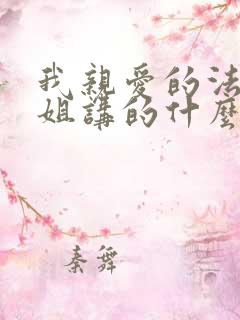 我親愛的法
姐講的什麼
秦舞